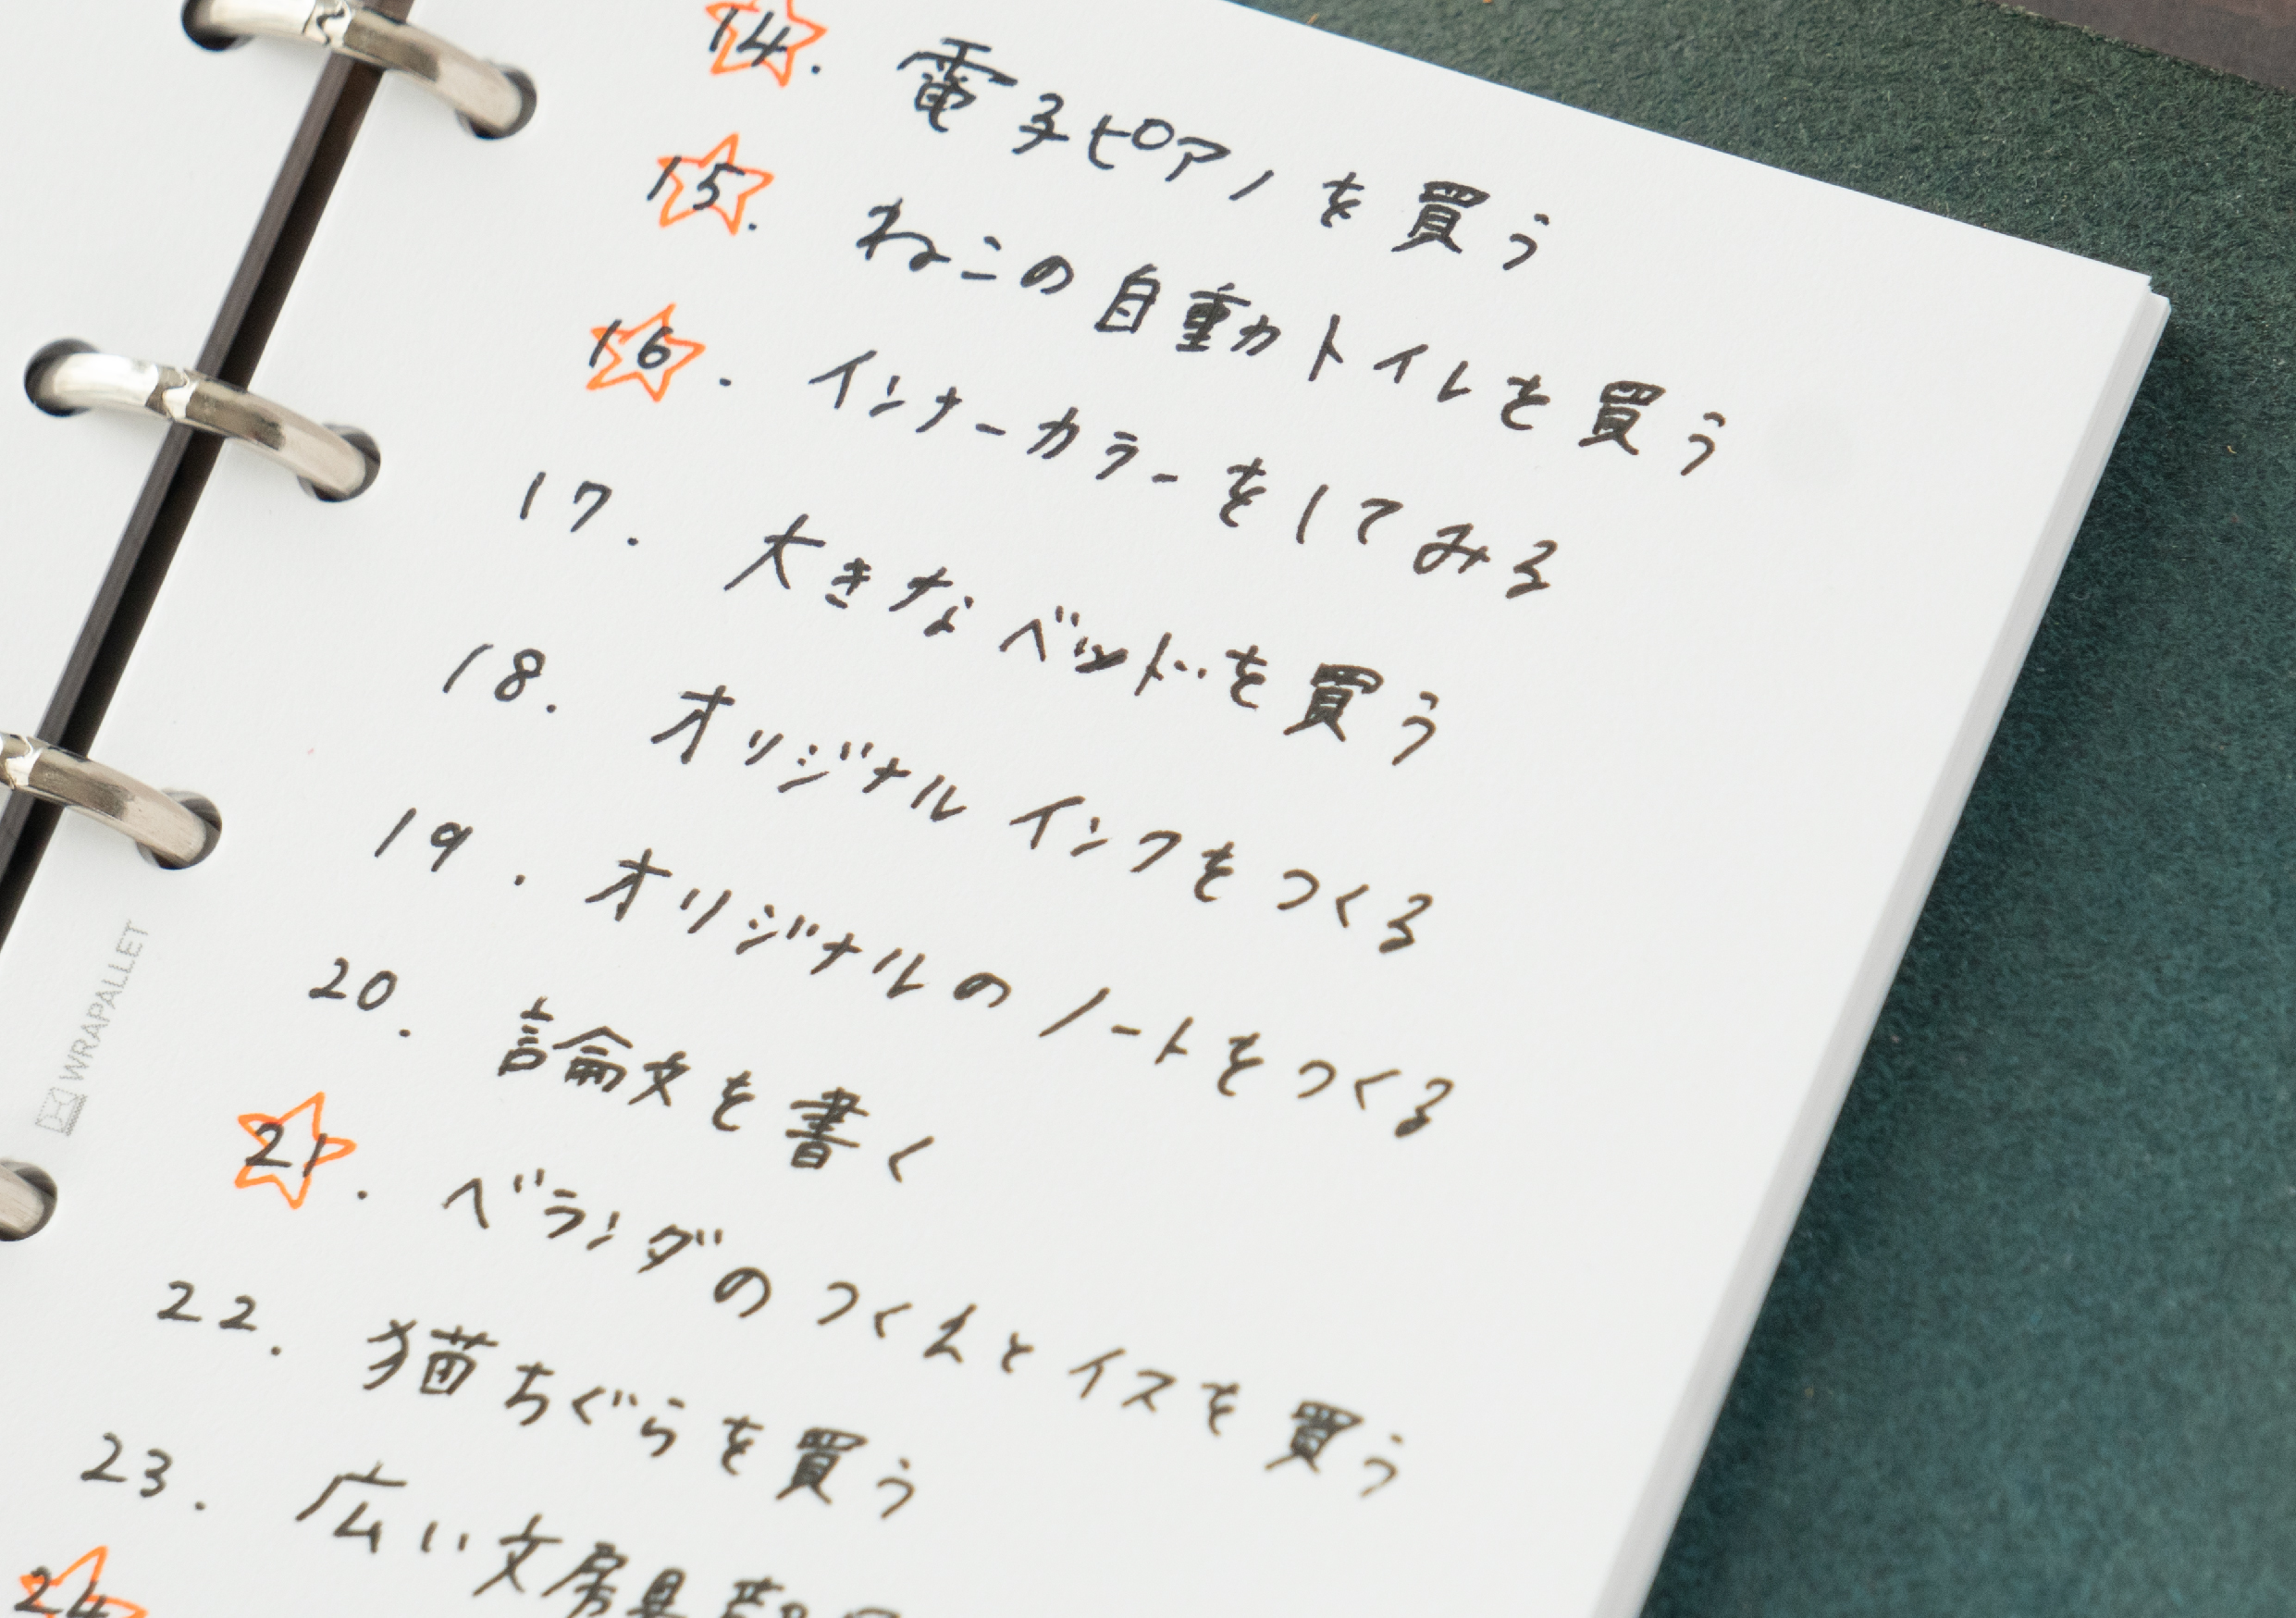 14. 電子ピアノを買う
15. ねこの自動トイレを買う
16. インナーカラーをしてみる
17. 大きなベッドを買う
18. オリジナルインクをつくる
19. オリジナルのノートをつくる
20. 論文を書く
21. ベランダのつくえとイスを買う
22. 猫ちぐらを買う
23. 広い文房具
24
WRAPALLET